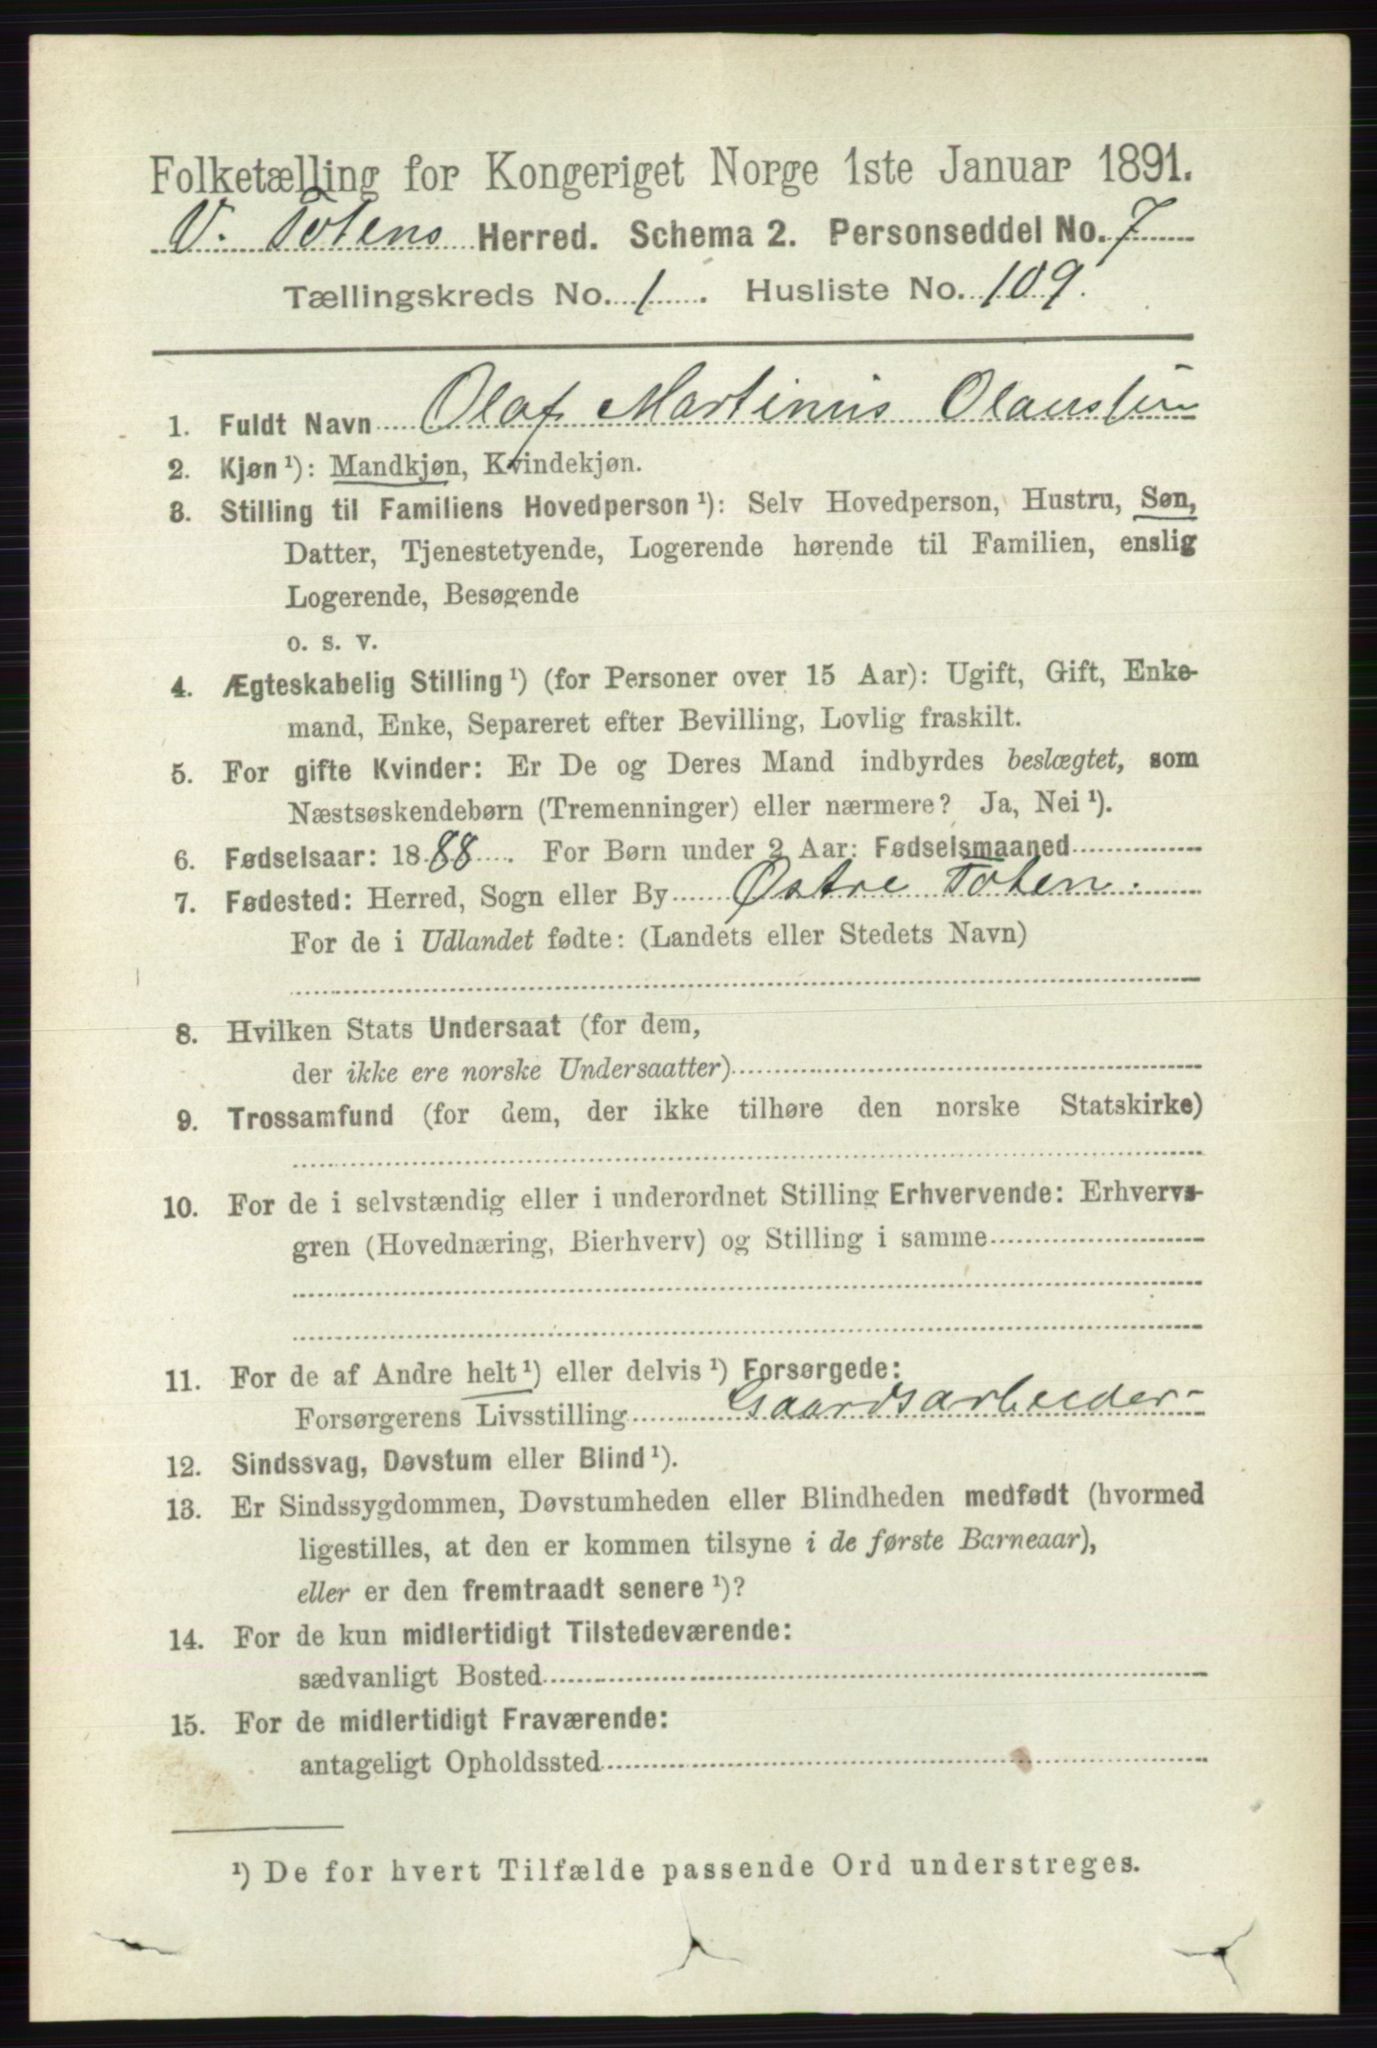 Folketælling for Kongeriget Norge 1ste Januar 1891.
V. Totens Herred. Schema 2. Personseddel No. 7
Tællingskreds No. 1. Husliste No. 109.
1. Fuldt Navn Olaf Martinius Olaussen
2. Kjøn ¹): Mandkjøn, Kvindekjøn.
3. Stilling til Familiens Hovedperson ¹): Selv Hovedperson, Hustru, Søn,
Datter, Tjenestetyende, Logerende hørende til Familien, enslig
Logerende, Besøgende
o. s. v.
4. Ægteskabelig Stilling ¹) (for Personer over 15 Aar): Ugift, Gift, Enke-
mand, Enke, Separeret efter Bevilling, Lovlig fraskilt.
5. For gifte Kvinder: Er De og Deres Mand indbyrdes beslægtet, som
Næstsøskendebørn (Tremenninger) eller nærmere? Ja, Nei ¹).
6. Fødselsaar: 1888. For Børn under 2 Aar: Fødselsmaaned
7. Fødested: Herred, Sogn eller By Østre Toten.
For de i Udlandet fødte: (Landets eller Stedets Navn)
8. Hvilken Stats Undersaat (for dem,
der ikke ere norske Undersaatter)
9. Trossamfund (for dem, der ikke tilhøre den norske Statskirke)
10. For de i selvstændig eller i underordnet Stilling Erhvervende: Erhvervs-
gren (Hovednæring, Bierhverv) og Stilling i samme
11. For de af Andre helt ¹) eller delvis ¹) Forsørgede:
Forsørgerens Livsstilling Gaardsarbeider
12. Sindssvag, Døvstum eller Blind ¹).
13. Er Sindssygdommen, Døvstumheden eller Blindheden medfødt (hvormed
ligestilles, at den er kommen tilsyne i de første Barneaar),
eller er den fremtraadt senere ¹)?
14. For de kun midlertidigt Tilstedeværende:
sædvanligt Bosted
15. For de midlertidigt Fraværende:
antageligt Opholdssted
¹) De for hvert Tilfælde passende Ord understreges.